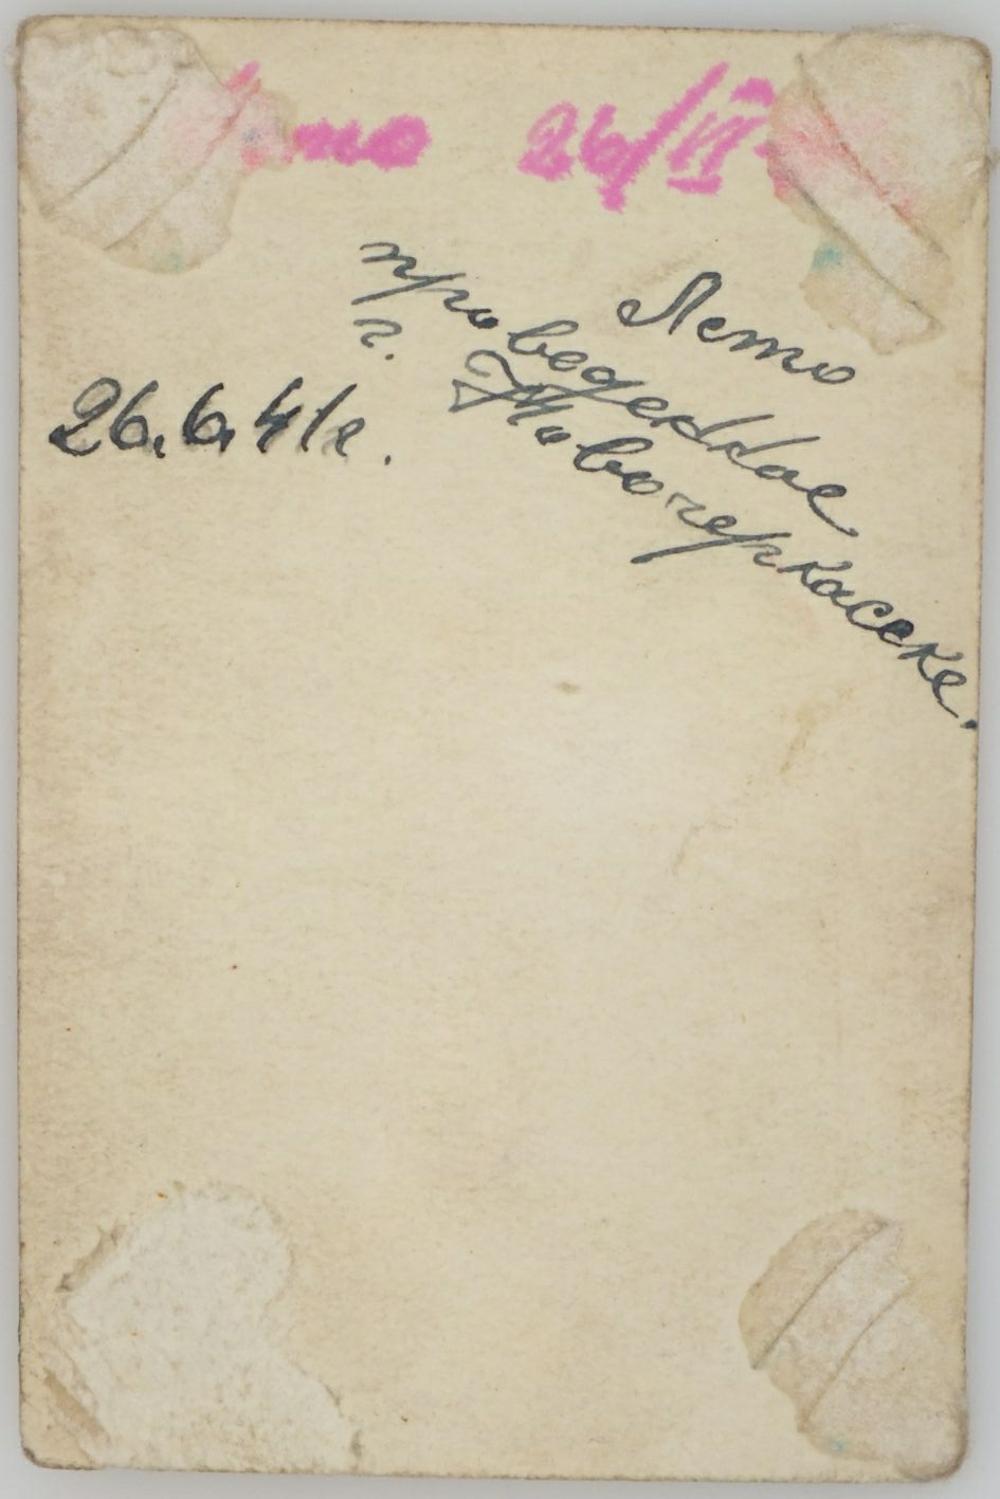 26/VI
Лето
проведенное
г. Новочеркасске.
26.6.41г.